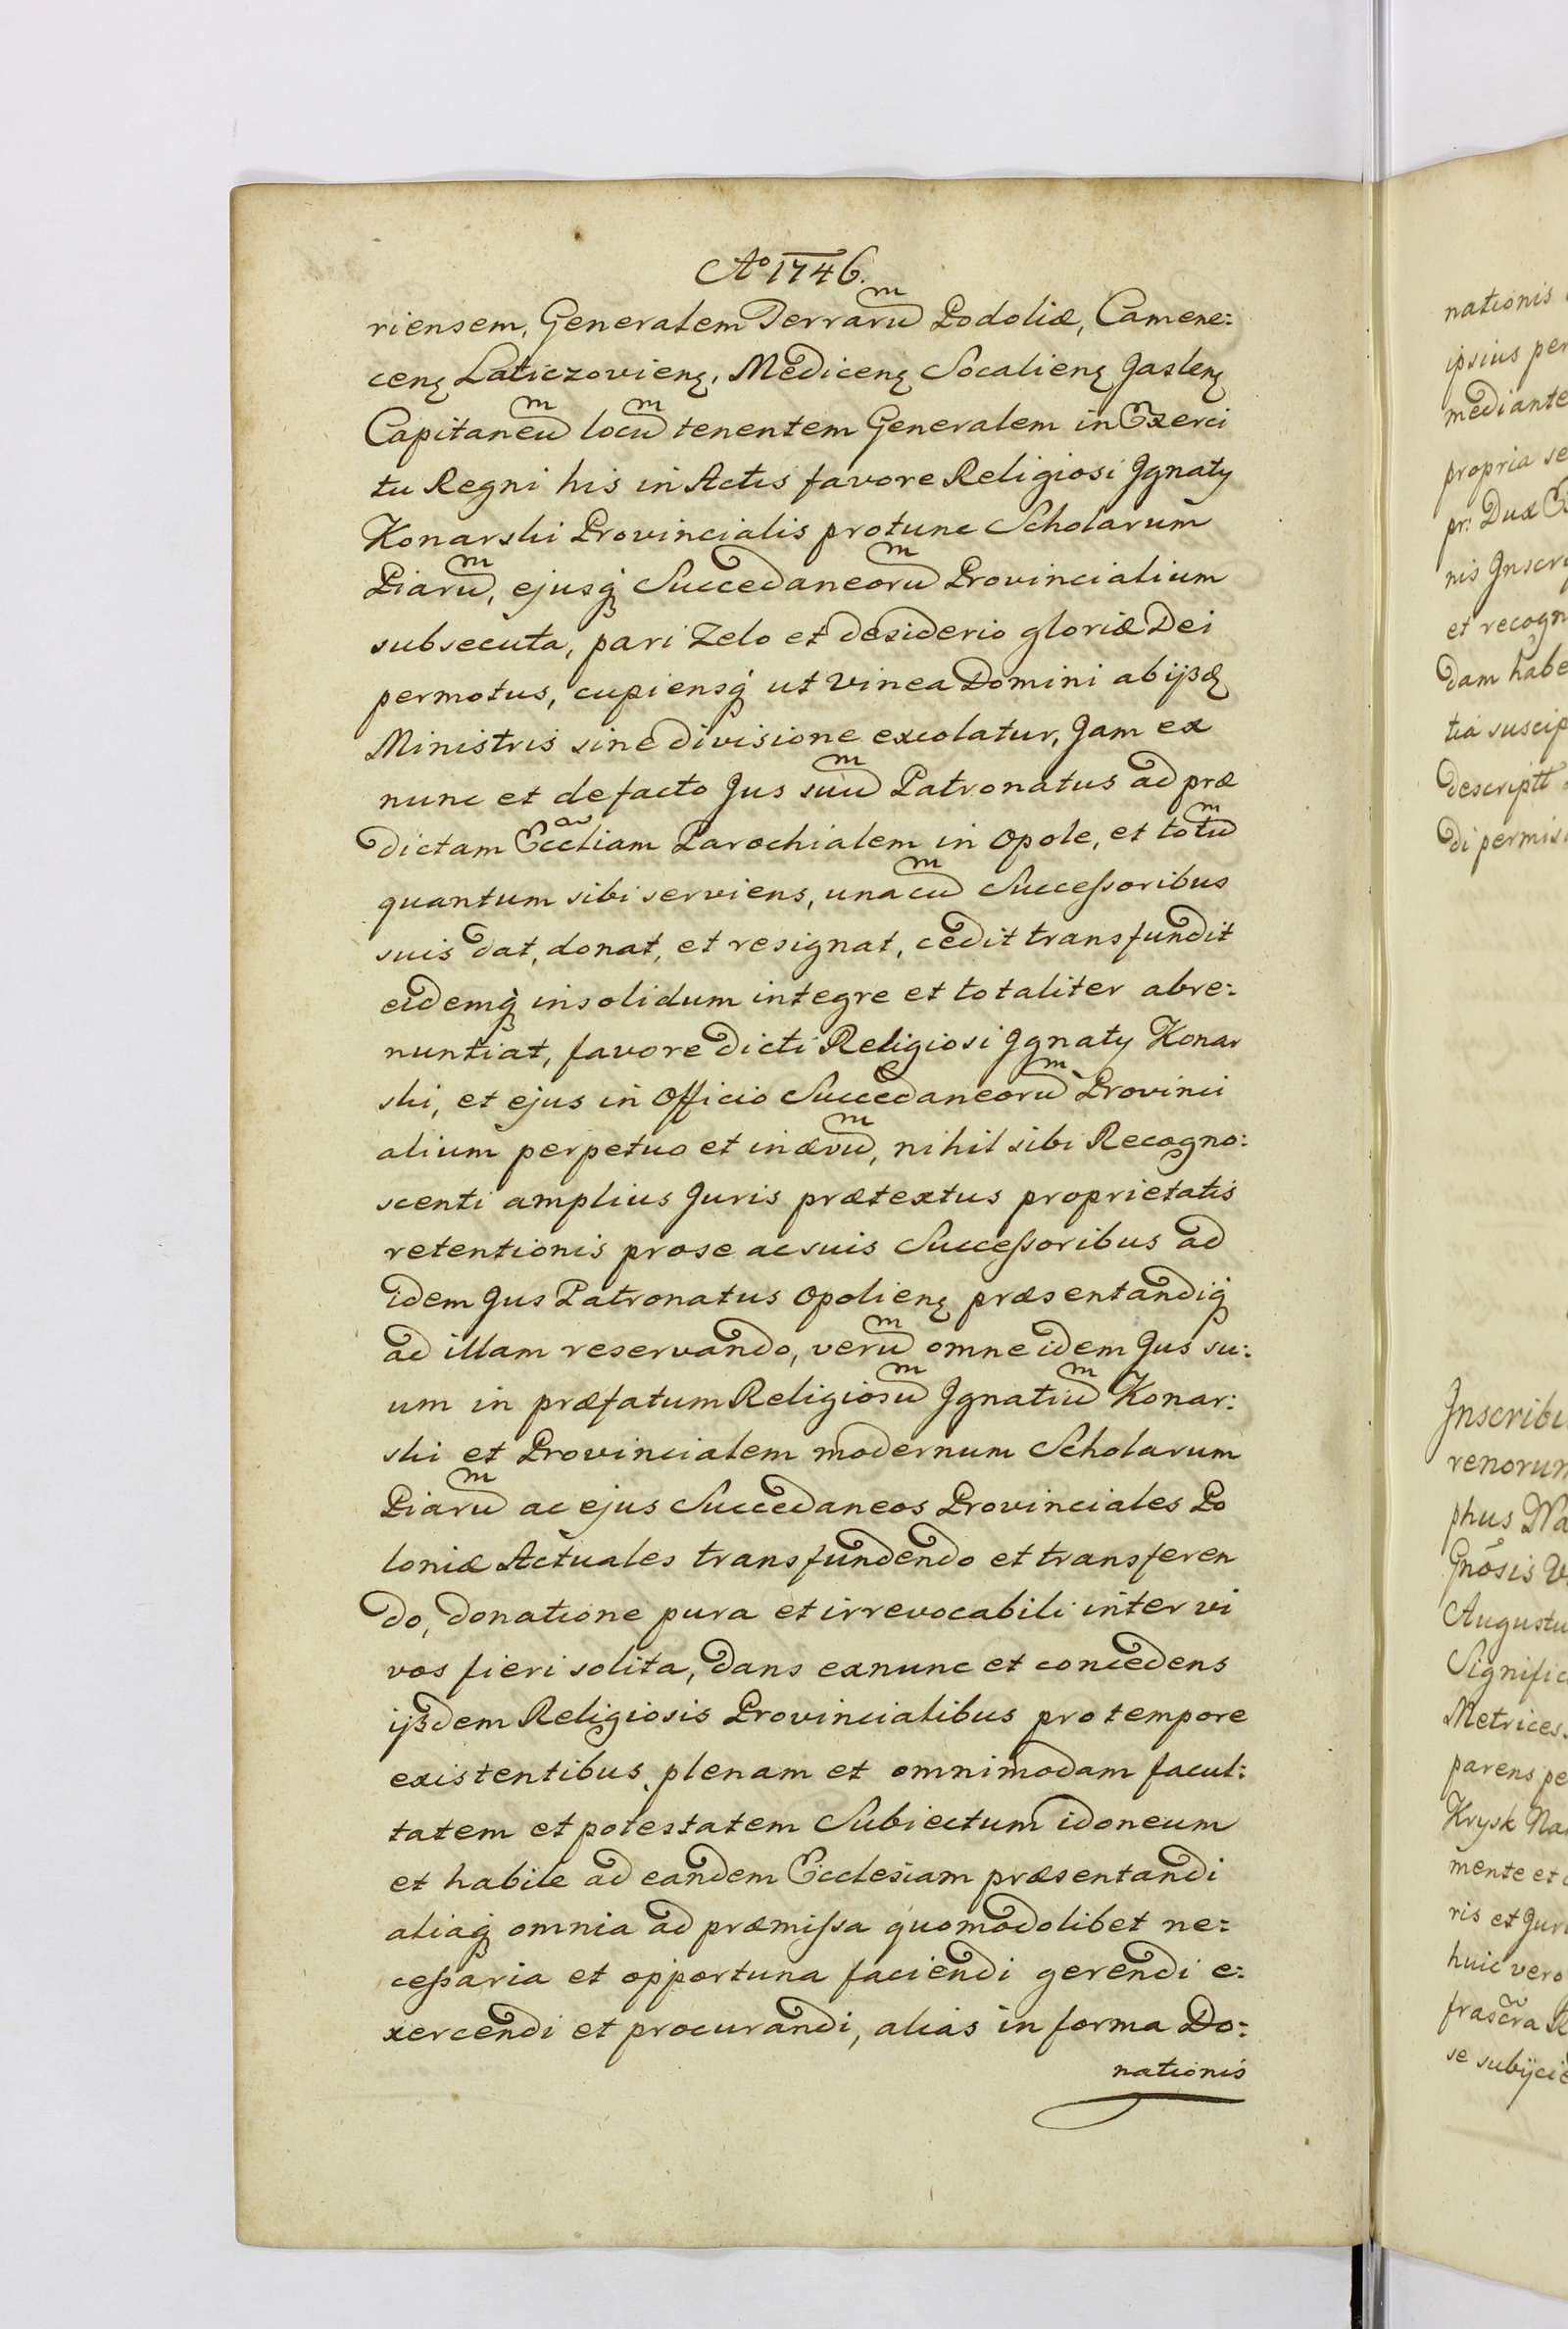 Aº 1746.
riensem, Generalem Terrarum Podoliæ, Camene:
cenꝭ Laticzovienꝭ, Medicenꝭ Socalienꝭ Jaslenꝭ
Capitaneum locum tenentem Generalem in Exerci
tu Regni his in Actis favore Religiosi Ignaty
Konarski Provincialis protunc Scholarum
Piarum, ejusq́ Succedaneorum Provincialium
subsecuta, pari Zelo et desiderio gloriæ Dei
permotus, cupiensq́ ut Vinea Domini ab ijsdꝭ
Ministris sine divisione excolatur, Jam ex
nunc et defacto Jus suum Patronatus ad præ
dictam Eccliam Parochialem in Opole, et totum
quantum sibi serviens, unacum Successoribus
suis dat, donat, et resignat, cedit transfundit
eidemq́ insolidum integre et totaliter abre:
nuntiat, favore dicti Religiosi Ignaty Konar
ski, et ejus in Officio Succedaneorum Provinci
alium perpetuo et inævum, nihil sibi Recogno:
scenti amplius Juris prætextus proprietatis
retentionis prose acsuis Successoribus ad
idem Jus Patronatus Opolienꝭ præsentandiq́
ad illam reservando, verum omne idem Jus su:
um in præfatum Religiosum Ignatium Konar:
ski et Provincialem modernum Scholarum
Piarum ac ejus Succedaneos Provinciales Po
loniæ Actuales transfundendo et transferen
do, donatione pura et irrevocabili inter vi
vos fieri solita, dans exnunc et concedens
ijsdem Religiosis Provincialibus pro tempore
existentibus, plenam et omnimodam facul:
tatem et potestatem Subiectum idoneum
et habile ad eandem Ecclesiam præsentandi
aliaq́ omnia ad præmissa quomodolibet ne:
cessaria et opportuna faciendi gerendi e:
xercendi et procurandi, alias in forma Do:
nationis
nationis
ipsius per
mediante
propria se
pr: Dux
nis Inscri
et recogn
dam habe
tia suscip
descriptt
di permis
Inscribi
renorum
phus Wa
Gnosis V
Augustu
Signific
Metrices
parens pe
Krysk Na
mente et
ris et Juri
huic vero
frascra
se subijcie